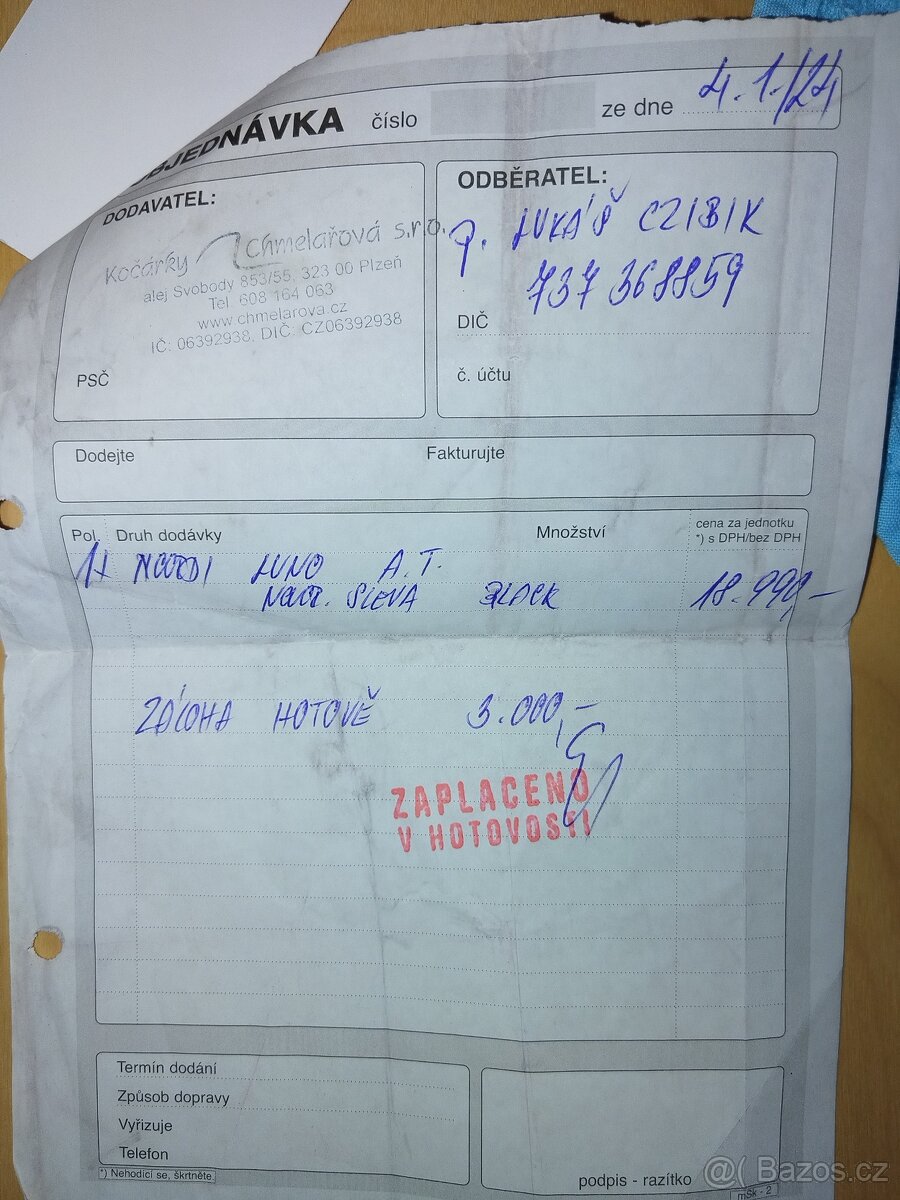 OBJEDNÁVKA číslo ze dne 4.1./24
DODAVATEL:
Kočárky Chmelařová s.r.o.
alej Svobody 853/55, 323 00 Plzeň
Tel. 608 164 063
www.chmelarova.cz
IČ: 06392938, DIČ: CZ06392938
PSČ
ODBĚRATEL:
p. LUKÁŠ CZIBIK
737 368859
DIČ
č. účtu
Dodejte Fakturujte
Pol. Druh dodávky Množství cena za jednotku
*) s DPH/bez DPH
1x NOORDI LUNO A.T.
SLEVA BLACK 18.999,-
ZÁLOHA HOTOVĚ 3.000,-
ZAPLACENO
V HOTOVOSTI
Termín dodání
Způsob dopravy
Vyřizuje
Telefon
*) Nehodící se, škrtněte.
podpis - razítko
mSk - 2
@( Bazos.cz